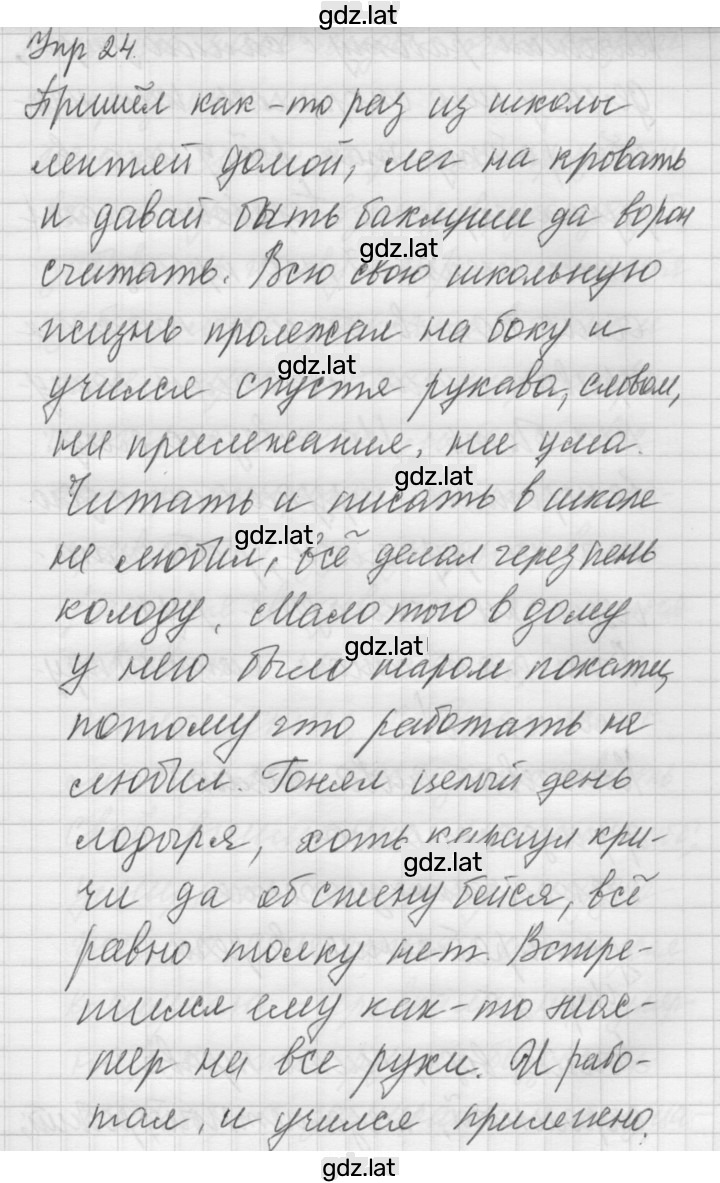 gdz.lat
Упр 24.
Пришёл как-то раз из школы
лентяй домой, лег на кровать
и давай быть баклуши да ворон
gdz.lat
считать. Всю свою школьную
жизнь пролежал на боку и
gdz.lat
учился спустя рукава, словом,
ни прилежания, ни ума.
gdz.lat
Читать и писать в школе
gdz.lat
не любил, всё делал через пень
колоду. Мало того в дому
gdz.lat
у него было шаром покати,
потому что работать не
любил. Гонял целый день
лодыря, хоть караул кри-
gdz.lat
чи да об стену бейся, всё
равно толку нет. Встре-
тился ему как-то мас-
тер на все руки. И рабо-
тал, и учился прилежно.
gdz.lat